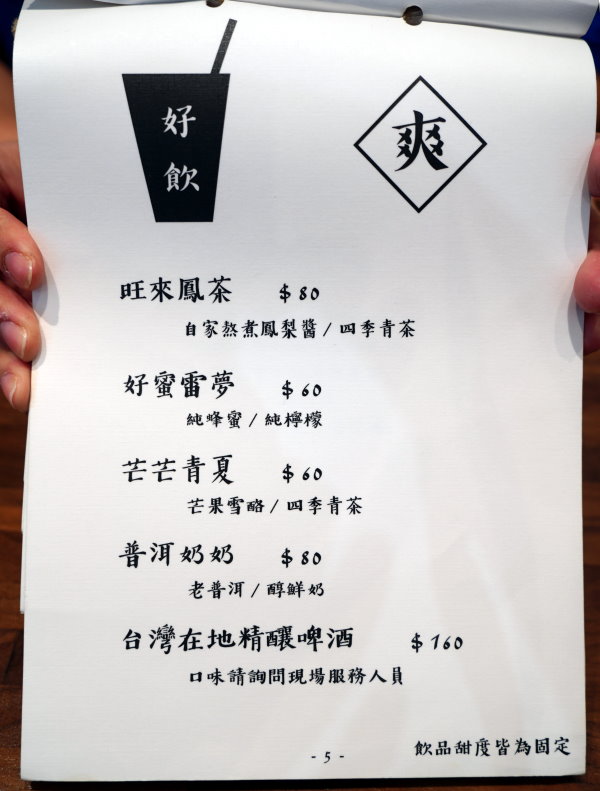 好
飲
爽
旺來鳳茶 $80
自家熬煮鳳梨醬/四季青茶
好蜜雷夢 $60
純蜂蜜/純檸檬
芒芒青夏 $60
芒果雪酪/四季青茶
普洱奶奶 $80
老普洱/醇鮮奶
台灣在地精釀啤酒 $160
口味請詢問現場服務人員
飲品甜度皆為固定
- 5 -